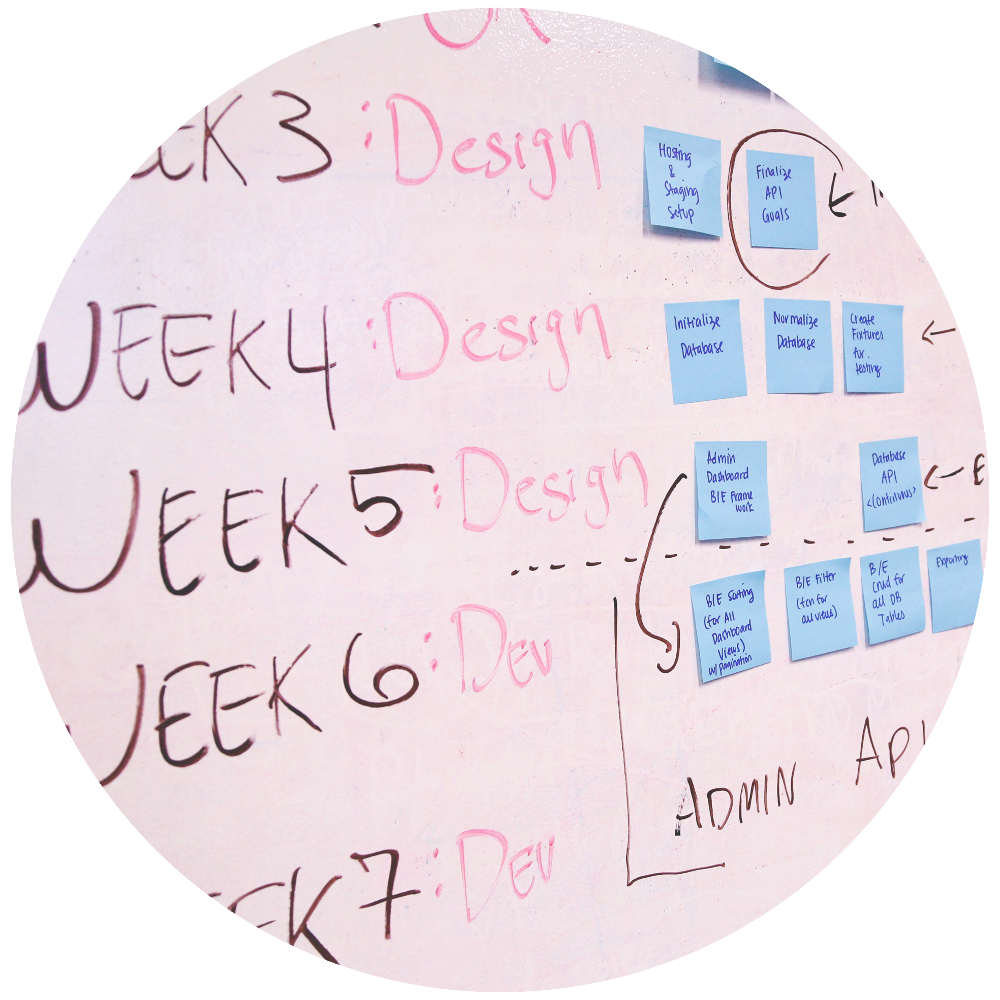 EK 3 : Design
Hosting
&
Staging
Setup
Finalize
API
Goals
WEEK 4 : Design
Initialize
Database
Normalize
Database
Create
Fixtures
for.
testing
WEEK 5 : Design
Admin
Dashboard
B/E Frame
work
Database
API
<continuous>
E
WEEK 6 : Dev
B/E Sorting
(for All
Dashboard
Views)
w/ pagination
B/E Filter
(fcn for
all views)
B/E
Crud for
all DB
Tables
Exporting
ADMIN
API
EEK 7 : Dev